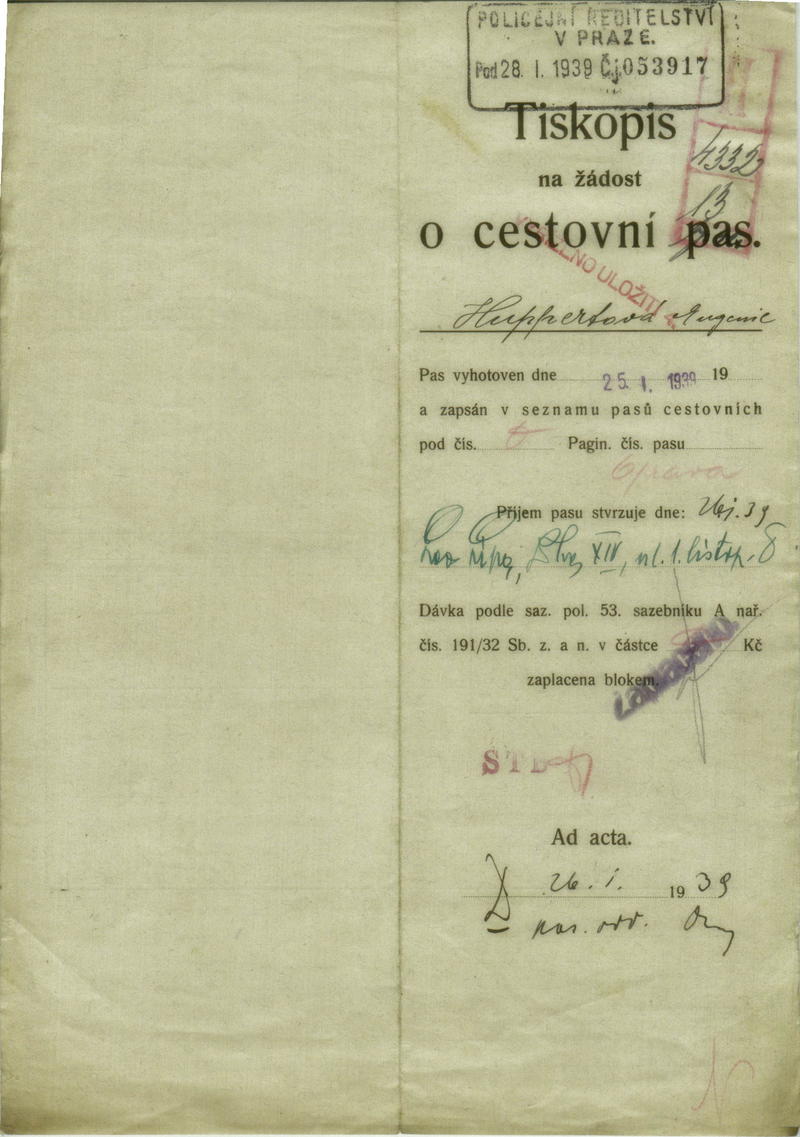 POLICEJNÍ ŘEDITELSTVÍ
V PRAZE.
Pod 28. I. 1939 Čj. 053917
Tiskopis
4332
na žádost
13
o cestovní pas.
ULOŽITI
Huppertová Eugenie
Pas vyhotoven dne 25. I. 1939 19
a zapsán v seznamu pasů cestovních
pod čís. Pagin. čís. pasu
Oprava
Příjem pasu stvrzuje dne: 26/I. 39
XIV, ul. 1. listop. 8
Dávka podle saz. pol. 53. sazebníku A nař.
čís. 191/32 Sb. z. a n. v částce Kč
zaplacena blokem.
Ad acta.
26. I. 1939
pas. odd.